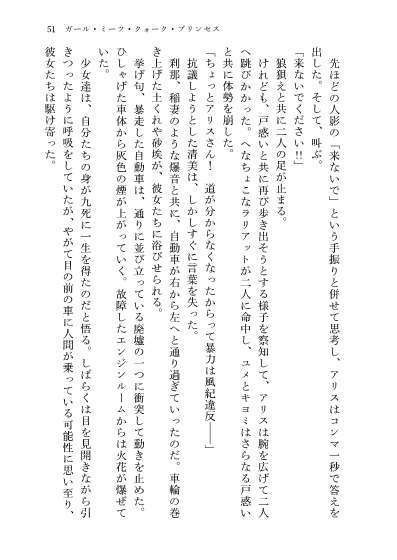 51 ガール・ミーツ・クォーク・プリンセス
先ほどの人影の「来ないで」という手振りと併せて思考し、アリスはコンマ一秒で答えを
出した。そして、叫ぶ。
「来ないでください!!」
狼狽えと共に二人の足が止まる。
けれども、戸惑いと共に再び歩き出そうとする様子を察知して、アリスは腕を広げて二人
へ跳びかかった。へなちょこなラリアットが二人に命中し、ユメとキヨミはさらなる戸惑い
と共に体勢を崩した。
「ちょっとアリスさん! 道が分からなくなったからって暴力は風紀違反――」
抗議しようとした清美は、しかしすぐに言葉を失った。
刹那、稲妻のような爆音と共に、自動車が右から左へと通り過ぎていったのだ。車輪の巻
き上げた土くれや砂埃が、彼女たちに浴びせられる。
挙げ句、暴走した自動車は、通りに並び立っている廃墟の一つに衝突して動きを止めた。
ひしゃげた車体から灰色の煙が上がっていく。故障したエンジンルームからは火花が爆ぜて
いた。
少女達は、自分たちの身が九死に一生を得たのだと悟る。しばらくは目を見開きながら引
きつったように呼吸をしていたが、やがて目の前の車に人間が乗っている可能性に思い至り、
彼女たちは駆け寄った。